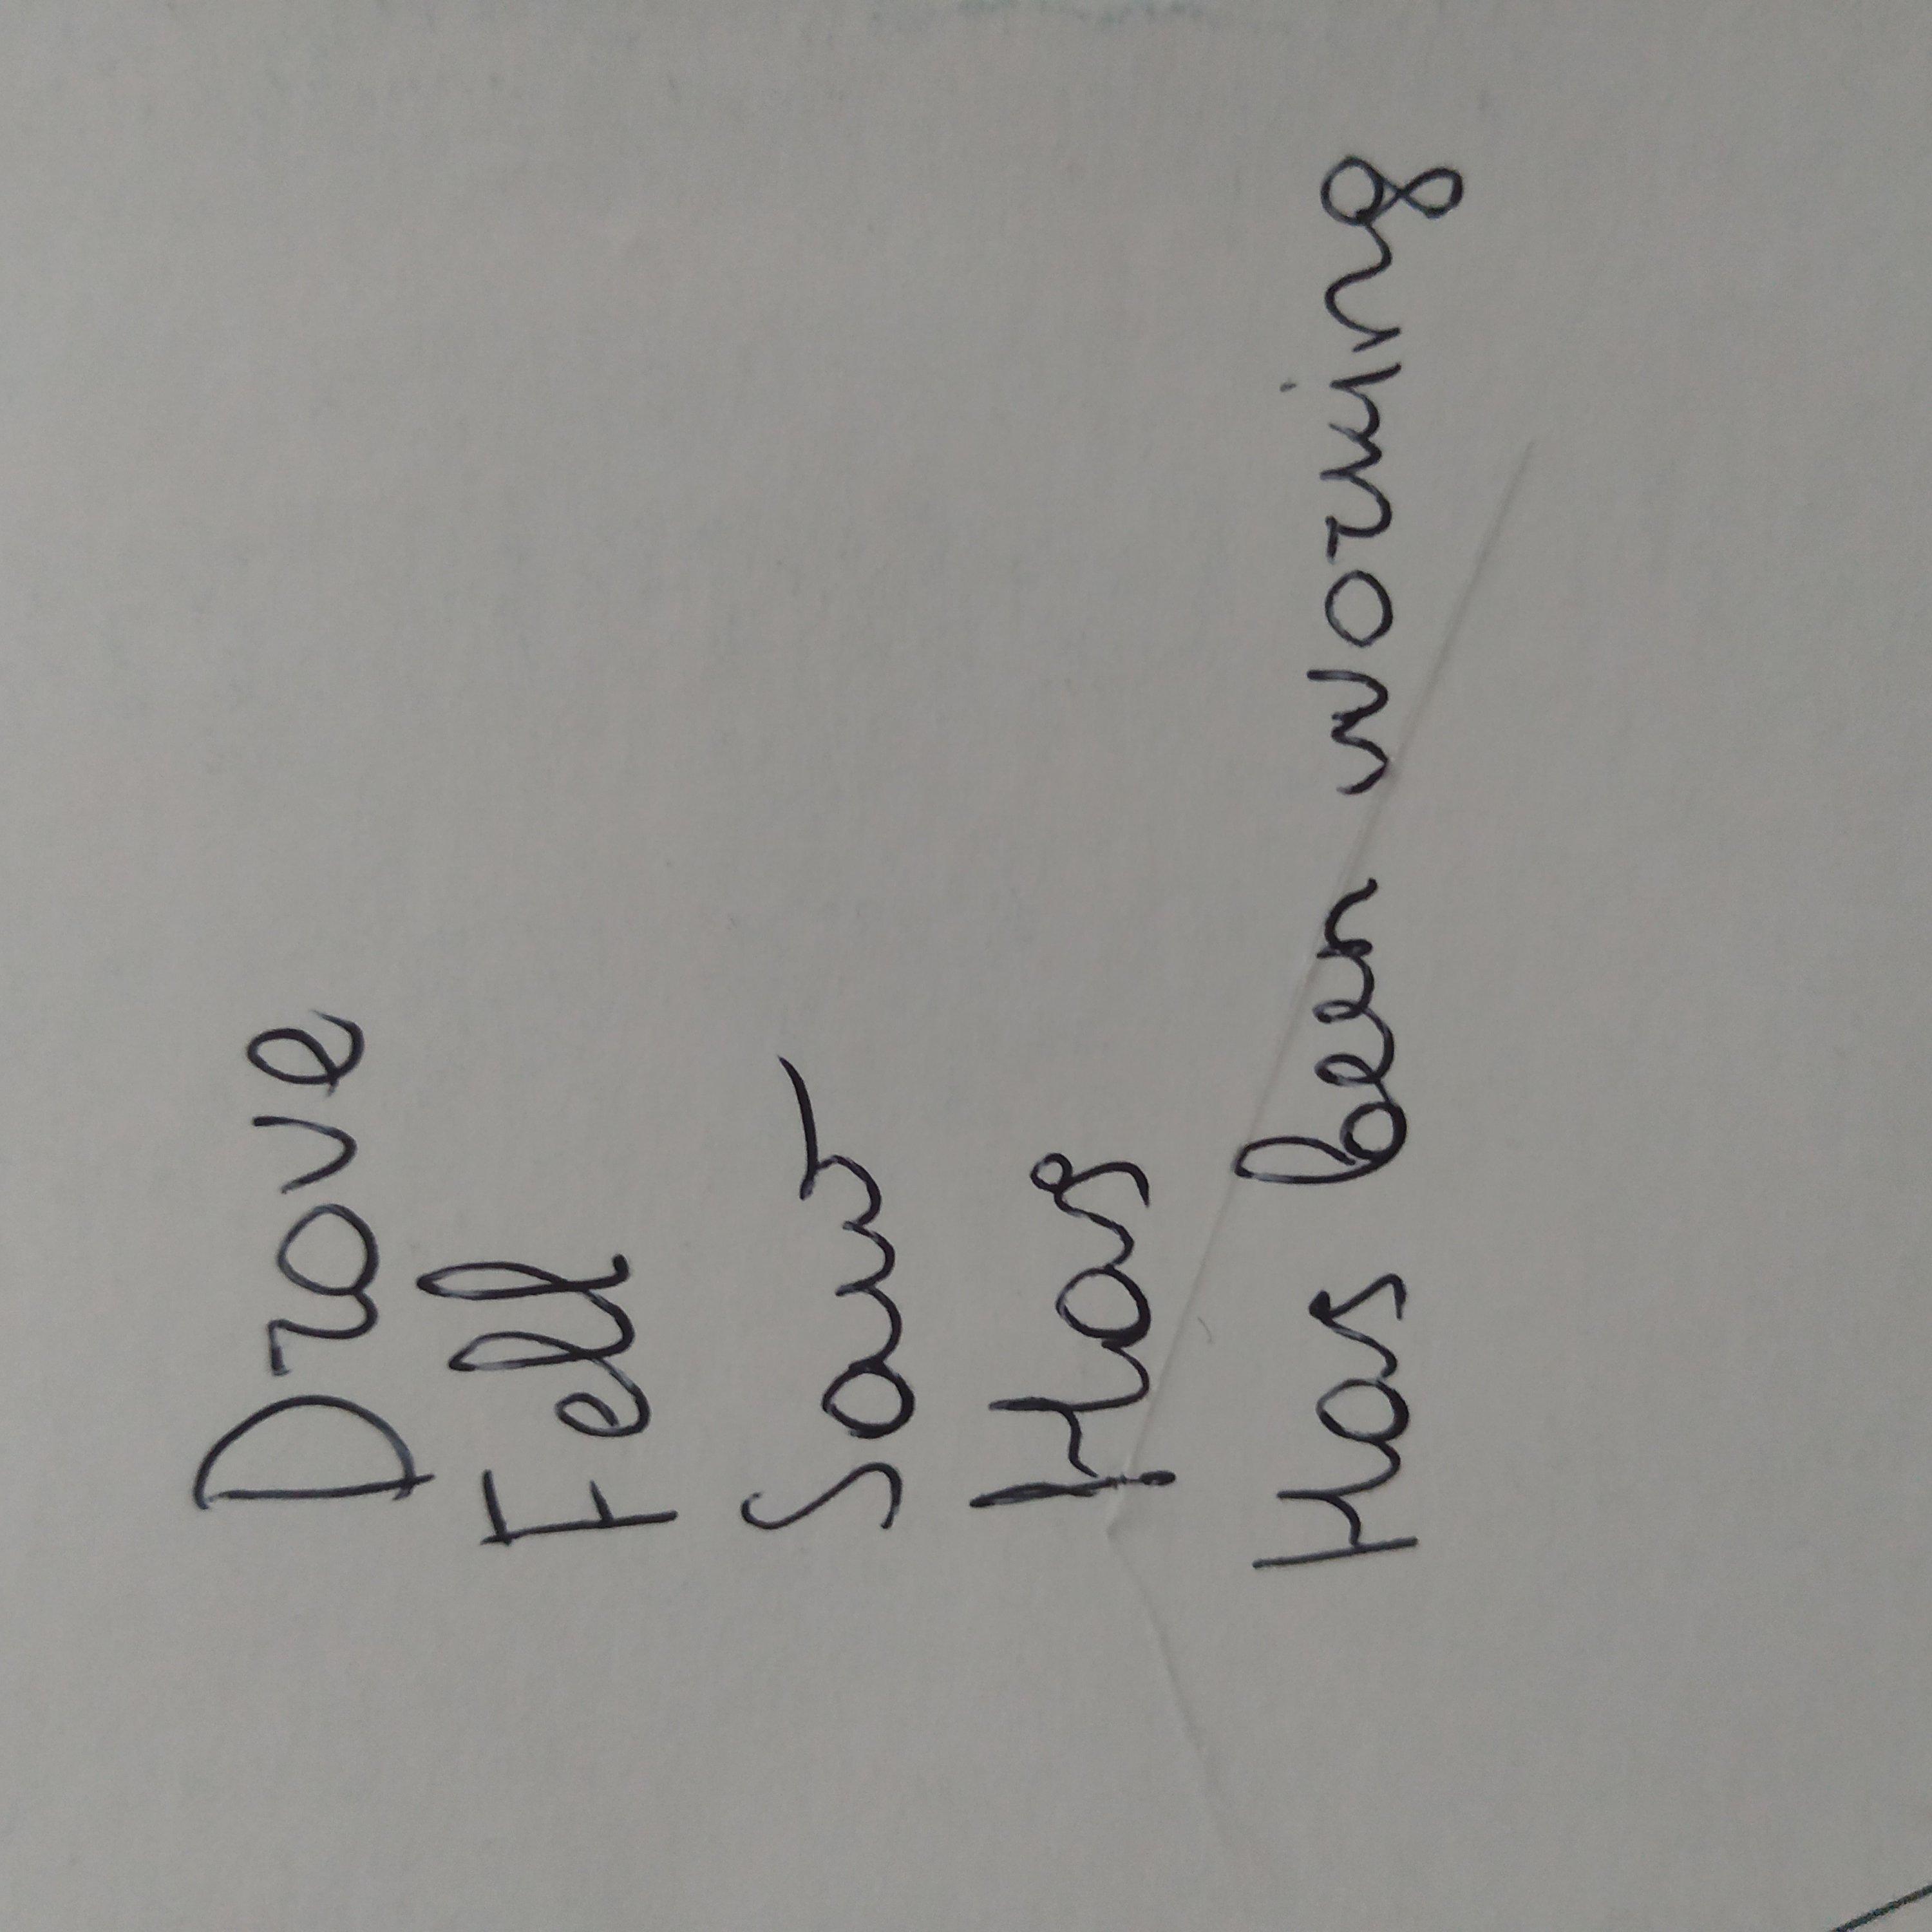 Drove
Fell
Saw
Has
Has been working